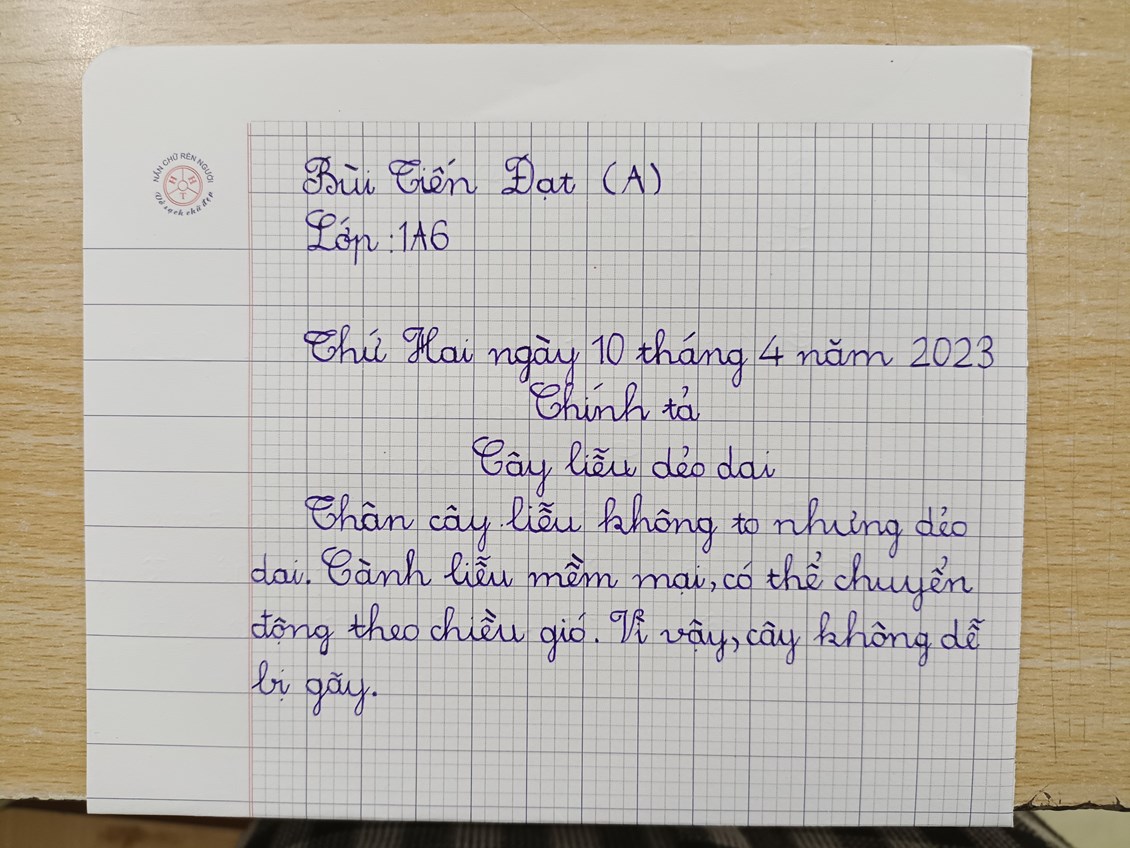 NẮN CHỮ RÈN NGƯỜI
Vở sạch chữ đẹp
Bùi Tiến Đạt (A)
Lớp: 1A6
Thứ Hai ngày 10 tháng 4 năm 2023
Chính tả
Cây liễu dẻo dai
Thân cây liễu không to nhưng dẻo
dai. Cành liễu mềm mại, có thể chuyển
động theo chiều gió. Vì vậy, cây không dễ
bị gãy.